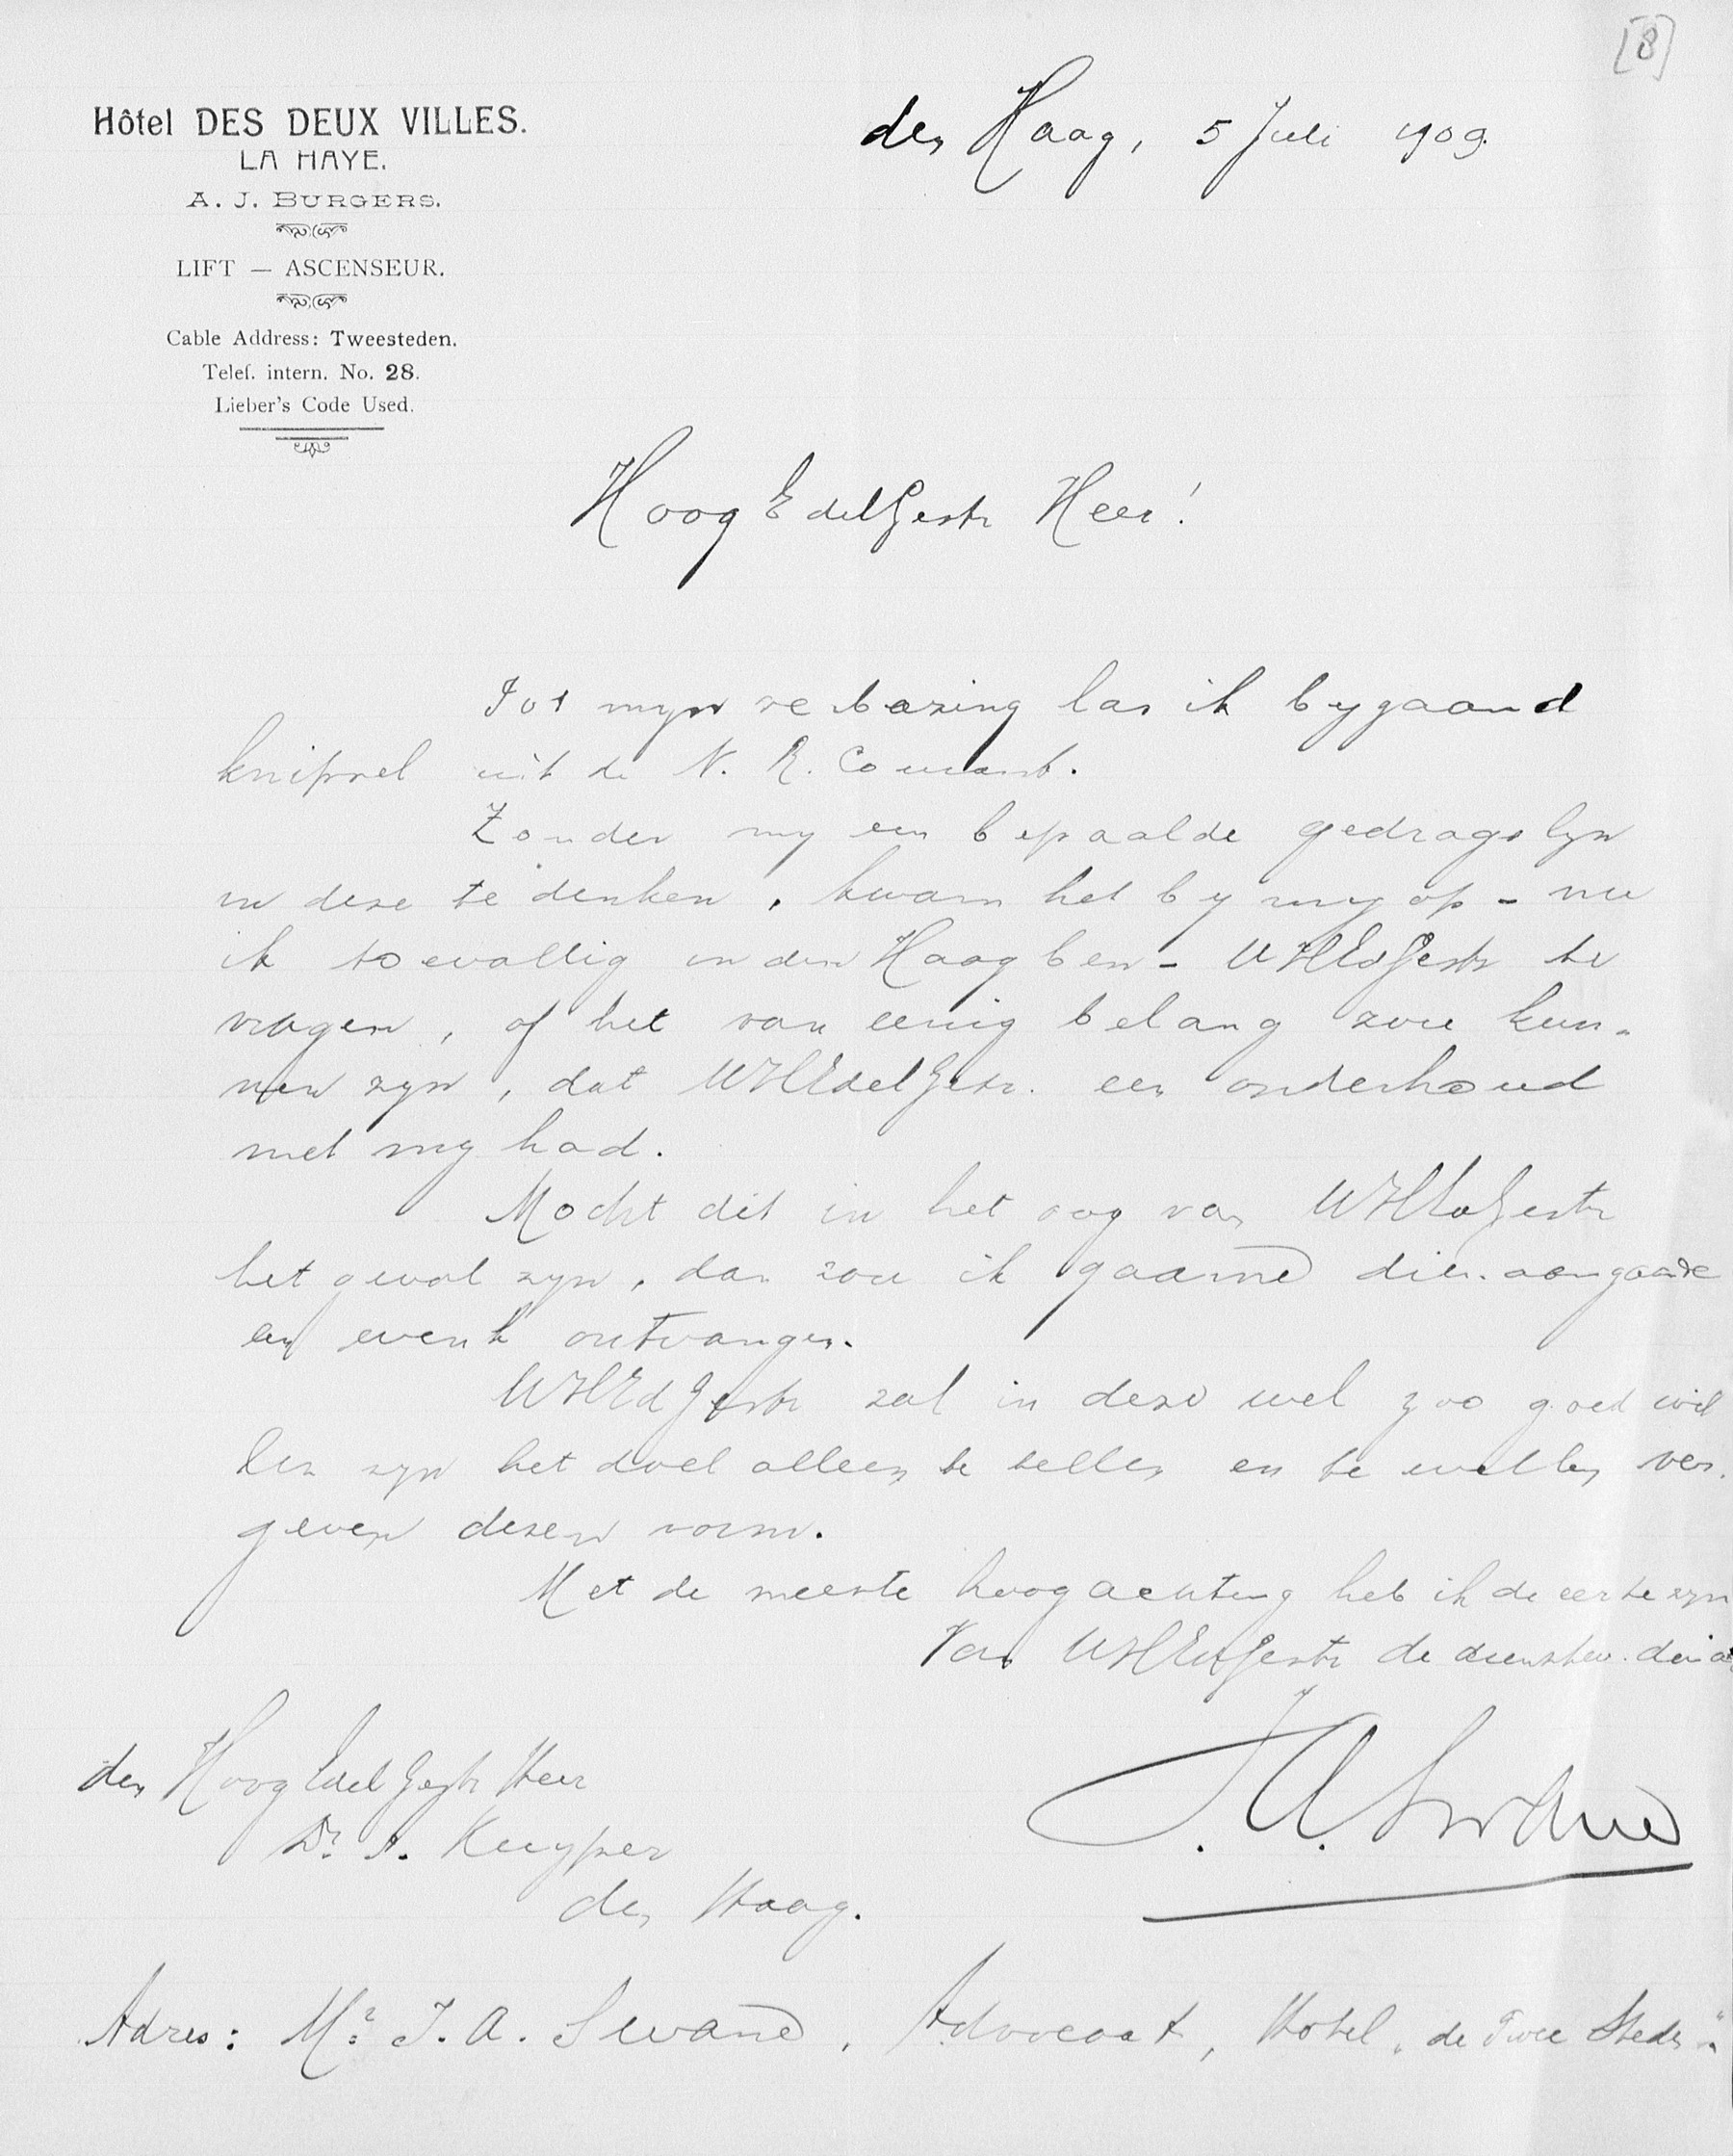 [8]
Hôtel DES DEUX VILLES.
LA HAYE.
A. J. BURGERS.
LIFT — ASCENSEUR.
Cable Address: Tweesteden.
Telef. intern. No. 28.
Lieber's Code Used.
den Haag, 5 Juli 1909.
HoogEdelGestr Heer!
Tot myn verbazing las ik bygaand
knipsel uit de N. R. Courant.
Zonder my een bepaalde gedragslyn
in deze te denken, kwam het by my op - nu
ik toevallig in den Haag ben - UHEdGestr te
vragen, of het van eenig belang zou kun-
nen zyn, dat UHEdelGestr. een onderhoud
met my had.
Mocht dit in het oog van UHEdGestr
het geval zyn, dan zou ik gaarne dien. aangaande
een ontvangen.
UHEdGestr zal in deze wel zoo goed wil
len zyn het doel alleen te tellen en te willen ver-
geven dezen vorm.
Met de meeste hoogachting heb ik de eer te zyn
Van UHEdGestr de dienstw. dien
J. A.
den HoogEdelGestr Heer
Dr. A. Kuyper
den Haag.
Adres: Mr. J. A. Advocaat, Hotel „de Twee Steden".